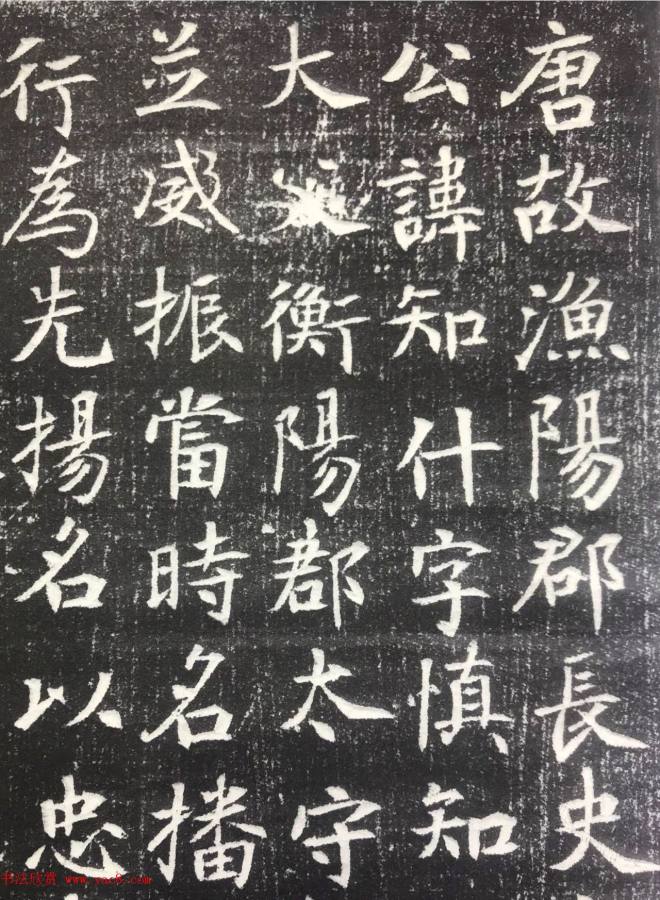 唐故漁陽郡長史
公諱知什字慎知
大衡陽郡太守
並威振當時名播
行為先揚名以忠
书法欣赏 www.yac8.com